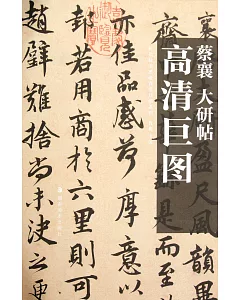 蔡襄 大研帖
高清巨图
襄
盈尺風韻
亦佳品感荷厚意以
邵若用商於六里則可
趙璧難捨尚未決之更